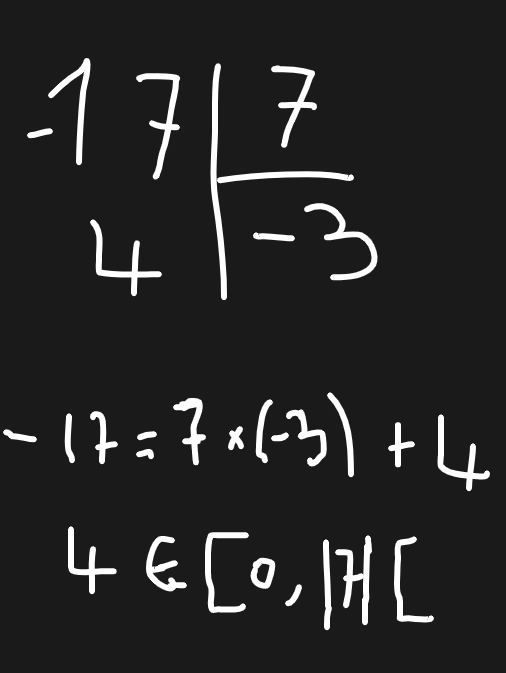 -17 | 7
4 | -3
-17 = 7 × (-3) + 4
4 ∈ [0, |7| [